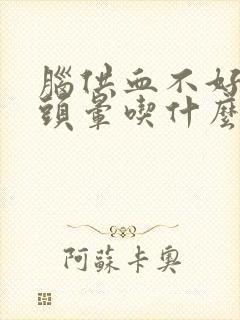 腦供血不好
頭暈喫什麼
阿蘇卡奧